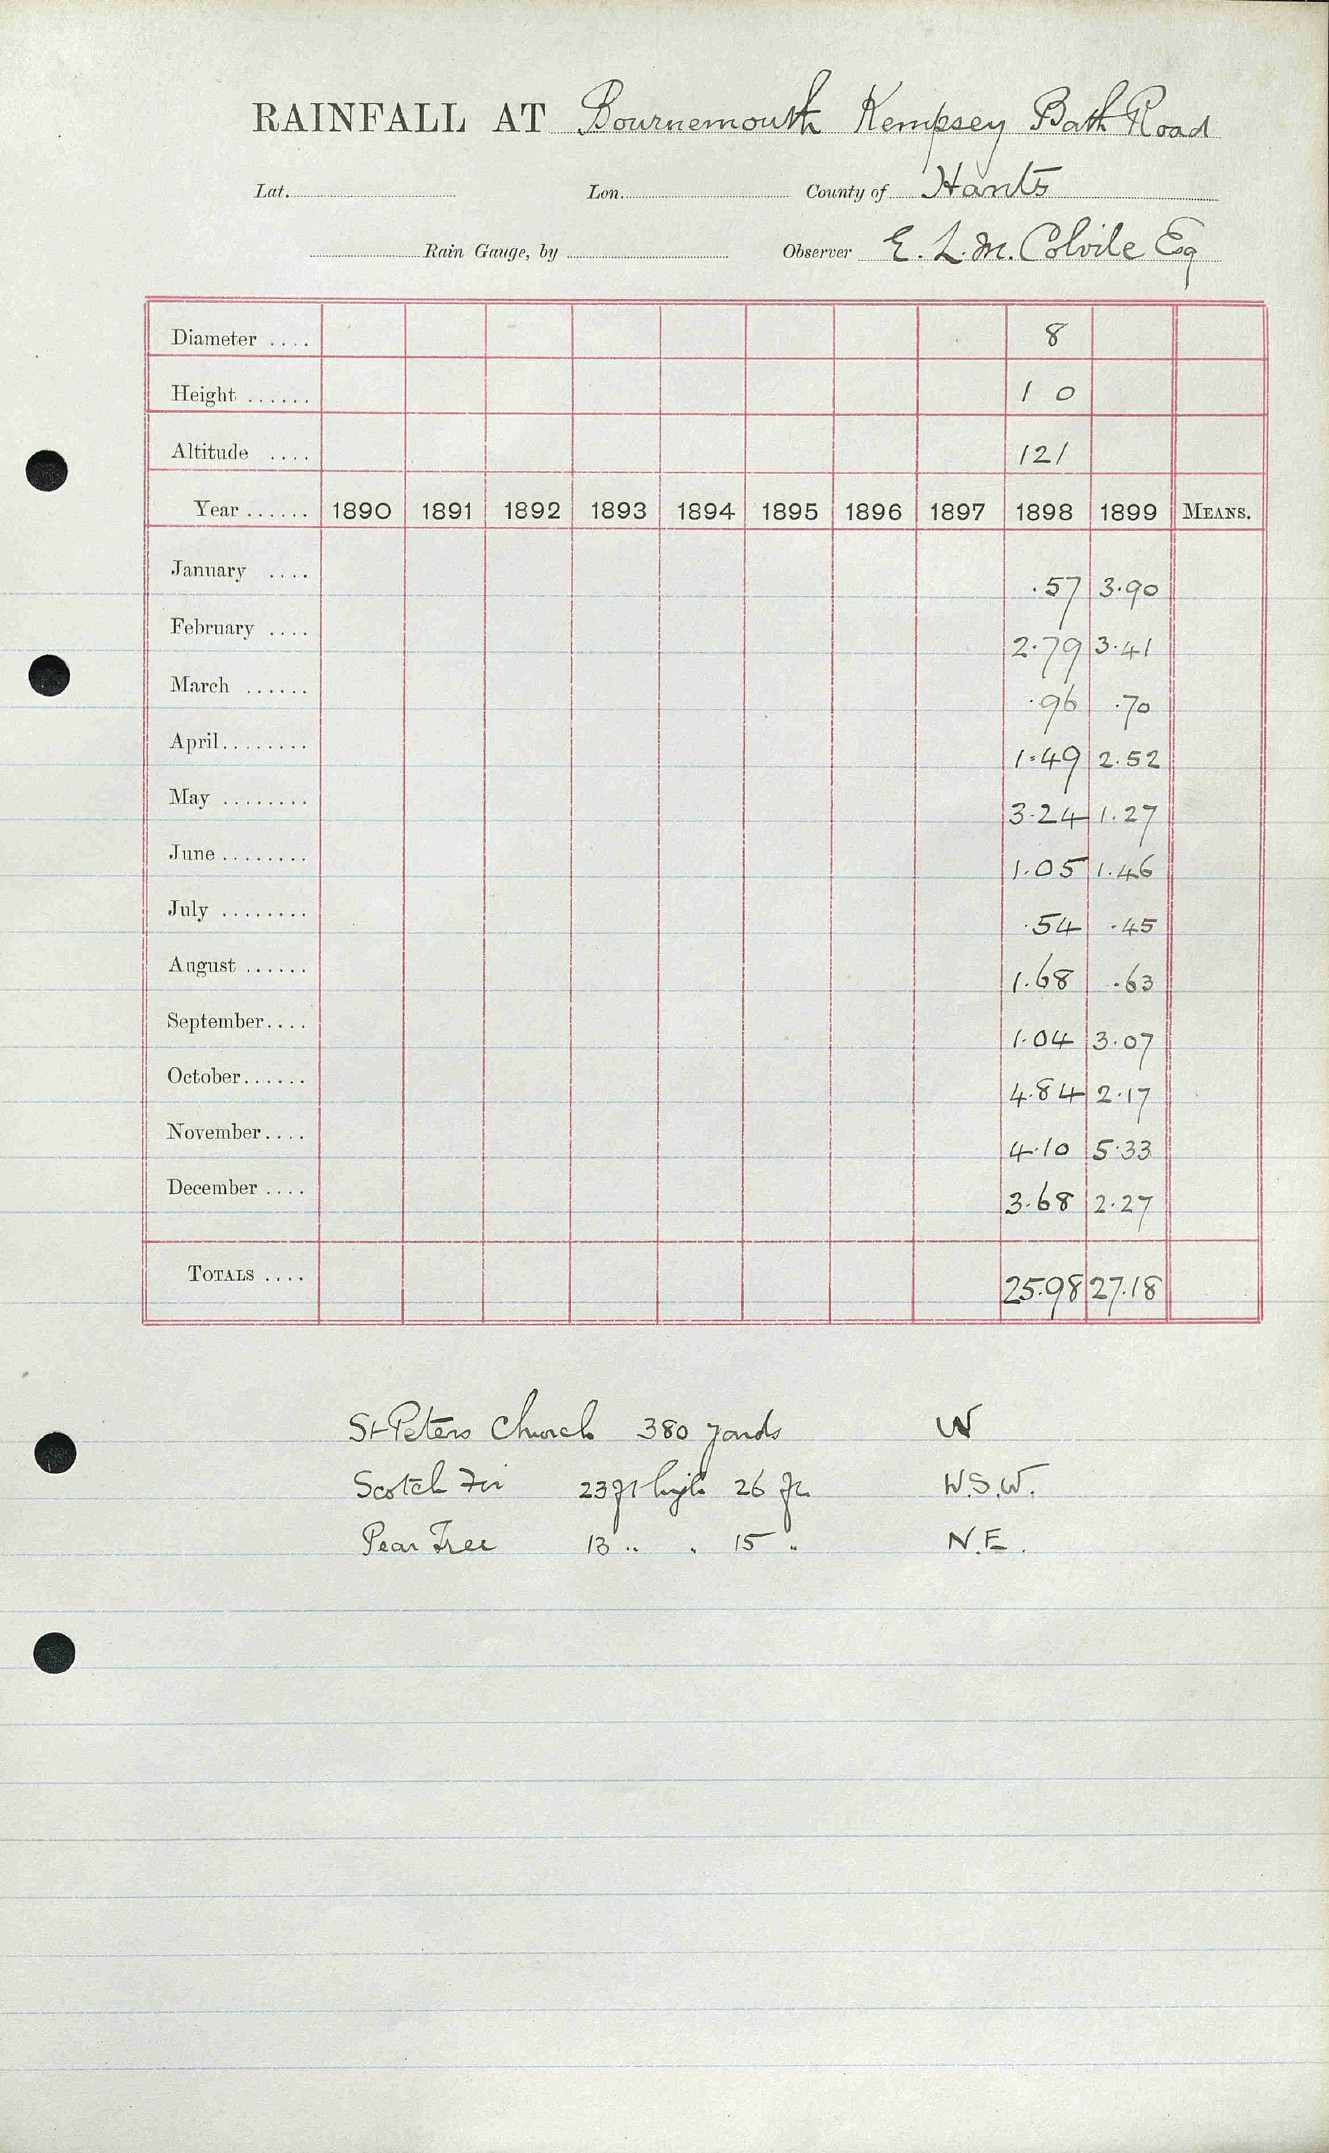 RAINFALL AT Bournemouth Kempsey Bath Road
Lat. Lon. County of Hants
Rain Gauge, by Observer E. L. M. Colvile Esq
Diameter .... 8
Height ...... 1 0
Altitude .... 121
Year ...... 1890 1891 1892 1893 1894 1895 1896 1897 1898 1899 MEANS.
January .... .57 3.90
February .... 2.79 3.41
March ...... .96 .70
April........ 1.49 2.52
May ........ 3.24 1.27
June ........ 1.05 1.46
July ........ .54 .45
August ...... 1.68 .63
September.... 1.04 3.07
October...... 4.84 2.17
November.... 4.10 5.33
December .... 3.68 2.27
TOTALS .... 25.98 27.18
St Peters Church 380 yards W
Scotch Fir 23 ft high 26 ft W.S.W.
Pear Tree 13 " " 15 " N.E.